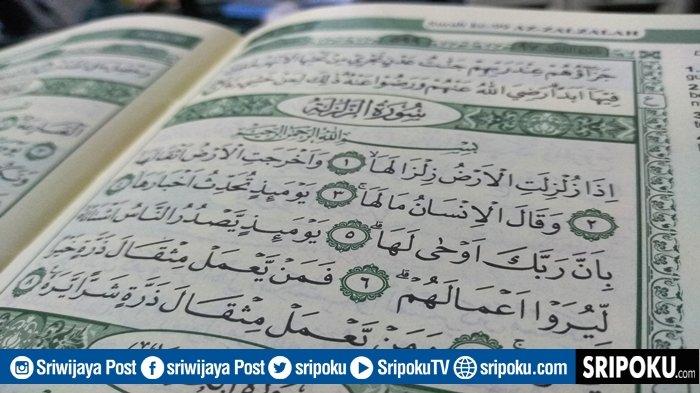 Surah ke-99 AZ-ZALZALAH
جَزَاؤُهُمْ عِنْدَ رَبِّهِمْ جَنّٰتُ عَدْنٍ تَجْرِيْ مِنْ تَحْتِهَا الْاَنْهٰرُ
فِيْهَآ اَبَدًا ۗرَضِيَ اللّٰهُ عَنْهُمْ وَرَضُوْا عَنْهُ ۗ ذٰلِكَ لِمَنْ خَشِيَ رَبَّهٗ
سُوْرَةُ الزَّلْزَلَةِ
بِسْمِ اللّٰهِ الرَّحْمٰنِ الرَّحِيْمِ
اِذَا زُلْزِلَتِ الْاَرْضُ زِلْزَالَهَاۙ ١ وَاَخْرَجَتِ الْاَرْضُ اَثْقَالَهَاۙ
٢ وَقَالَ الْاِنْسَانُ مَا لَهَاۚ ٣ يَوْمَىِٕذٍ تُحَدِّثُ اَخْبَارَهَاۙ ٤
بِاَنَّ رَبَّكَ اَوْحٰى لَهَاۗ ٥ يَوْمَىِٕذٍ يَّصْدُرُ النَّاسُ اَشْتَاتًا ەۙ
لِّيُرَوْا اَعْمَالَهُمْۗ ٦ فَمَنْ يَّعْمَلْ مِثْقَالَ ذَرَّةٍ خَيْرًا
وَمَنْ يَّعْمَلْ مِثْقَالَ ذَرَّةٍ شَرًّا يَّرَهٗ ٨
Sriwijaya Post sriwijaya Post sripoku SripokuTV sripoku.com SRIPOKU.com